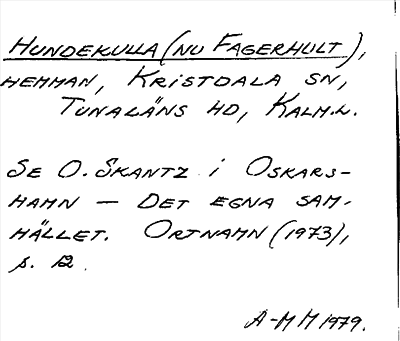 HUNDEKULLA (NU FAGERHULT),
HEMMAN, KRISTDALA SN,
TUNALÄNS HD, KALM.L.
SE O. SKANTZ i OSKARS-
HAMN – DET EGNA SAM-
HÄLLET. ORTNAMN (1973),
s. 12.
A-M M 1979.